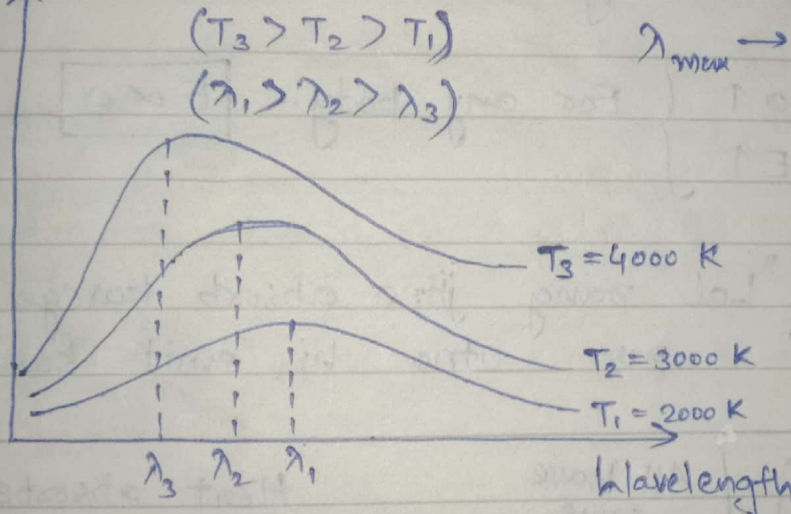 (T₃ > T₂ > T₁)
λmax →
(λ₁ > λ₂ > λ₃)
T₃ = 4000 K
T₂ = 3000 K
T₁ = 2000 K
λ₃ λ₂ λ₁
Wavelength